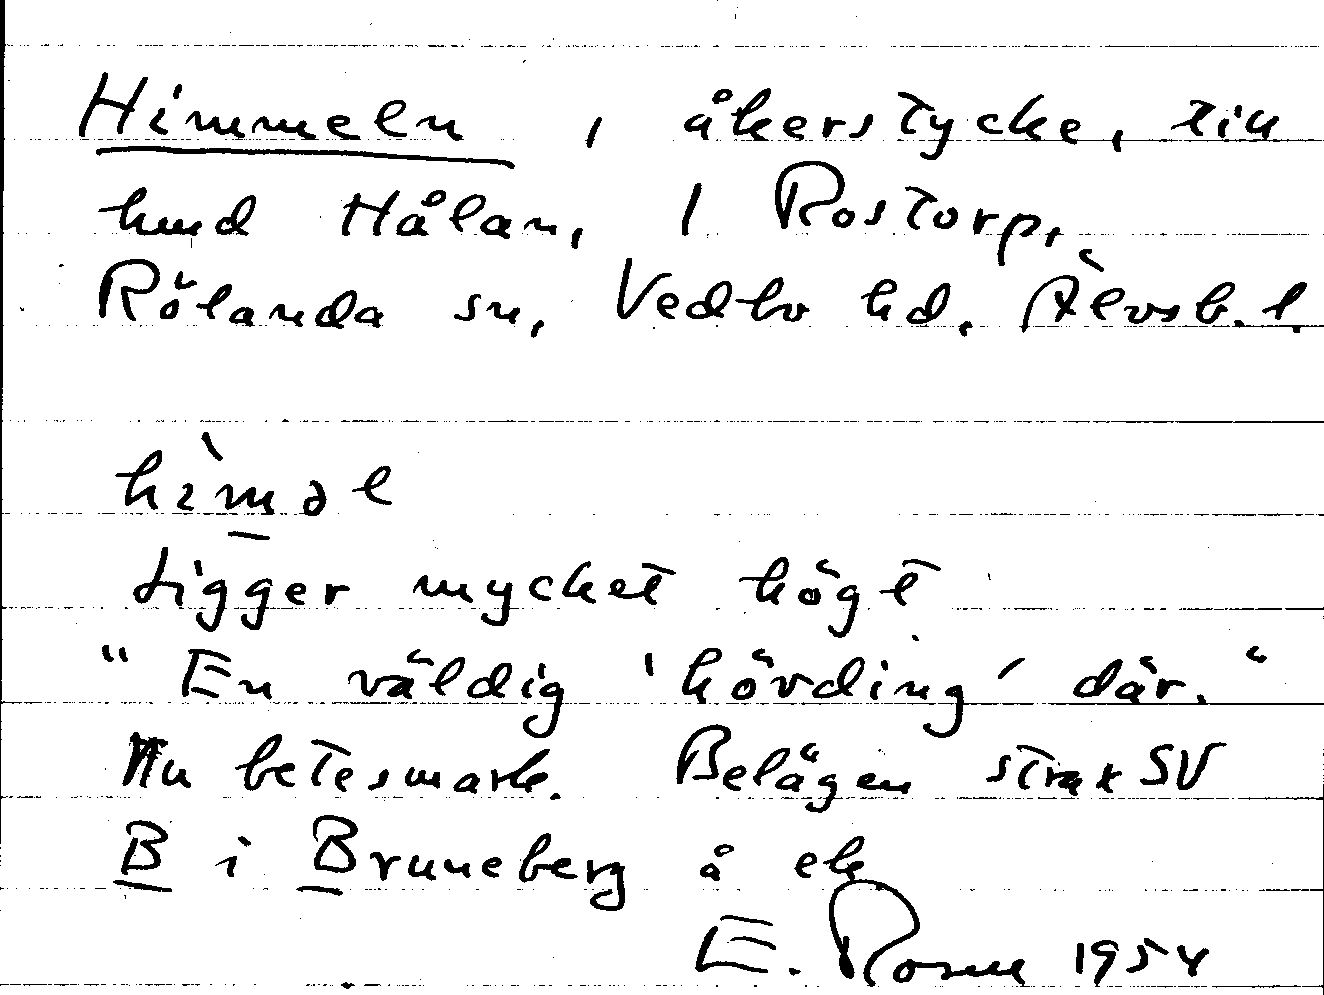 Himmeln, åkerstycke, till
hmd Hålan, 1 Rostorp,
Rölanda sn, Vedbo hd, Älvsb. l.
hìməl
Ligger mycket högt
"En väldig 'hövding' där."
Nu betesmark. Belägen strax SV
B i Bruneberg å ek
E. Rosell 1954